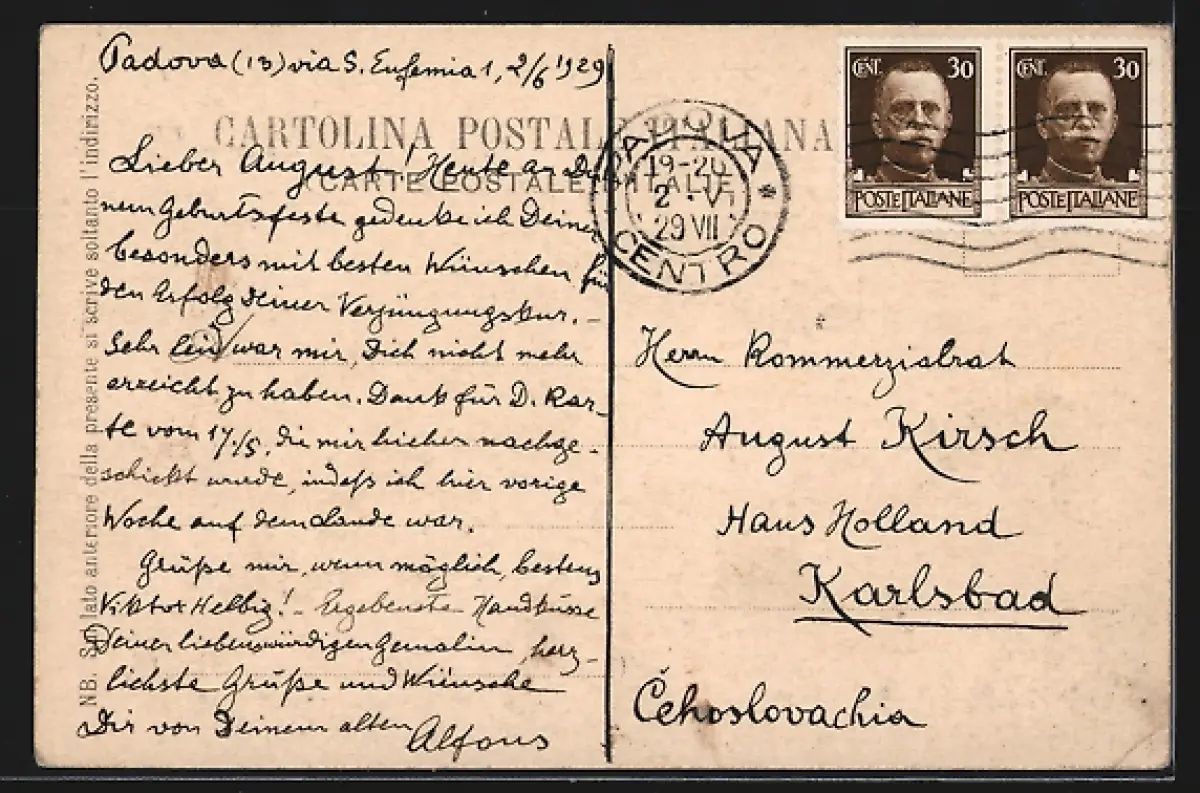 Padova (13) via S. Eufemia 1, 2/6 1929
CARTOLINA POSTALE ITALIANA
(CARTE POSTALE D'ITALIE)
NB. Sul lato anteriore della presente si scrive soltanto l'indirizzo.
Lieber August! Heute an Dei-
nem Geburtsfeste gedenke ich Deiner
besonders mit besten Wünschen für
den Erfolg Deiner Verjüngungskur. –
Sehr leid war mir, Dich nicht mehr
erreicht zu haben. Dank für D. Kar-
te vom 17./5. die mir hieher nachge-
schickt wurde, indeß ich hier vorige
Woche auf dem Lande war.
Grüße mir, wenn möglich, bestens
Viktor Helbig! – Ergebenste Handküsse
Deiner liebenswürdigen Gemalin, herz-
lichste Grüße und Wünsche
Dir von Deinem alten Alfons
PADOVA
19-20
2 · VI
29 VII
CENTRO
CENT. 30
POSTE ITALIANE
CENT. 30
POSTE ITALIANE
Herrn Kommerzialrat
August Kirsch
Haus Holland
Karlsbad
Čehoslovachia